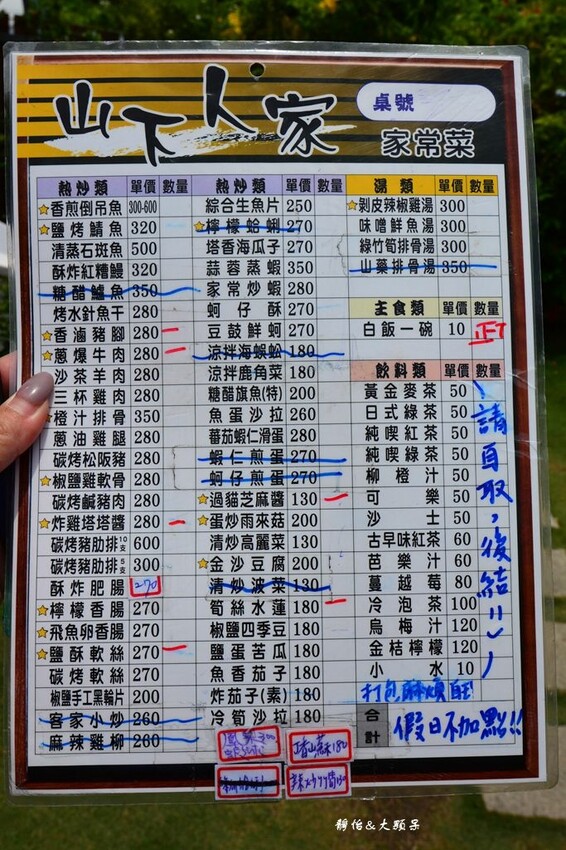 山下人家
桌號
家常菜
熱炒類 單價 數量
香煎倒吊魚 300-600
鹽烤鯖魚 320
清蒸石斑魚 500
酥炸紅糟鰻 320
糖醋鱸魚 350
烤水針魚干 280
香滷豬腳 280 一
蔥爆牛肉 280 一
沙茶羊肉 280
三杯雞肉 280
橙汁排骨 350
蔥油雞腿 280
碳烤松阪豬 280
椒鹽雞軟骨 280
碳烤鹹豬肉 280
炸雞塔塔醬 280 一
碳烤豬肋排10支 600
碳烤豬肋排5支 300
酥炸肥腸 270
檸檬香腸 270
飛魚卵香腸 270
鹽酥軟絲 270 一
碳烤軟絲 270
椒鹽手工黑輪片 200
客家小炒 260
麻辣雞柳 260
熱炒類 單價 數量
綜合生魚片 250
檸檬蛤蜊 270
塔香海瓜子 270
蒜蓉蒸蝦 350
家常炒蝦 280
蚵仔酥 270
豆豉鮮蚵 270
涼拌海蜈蚣 180
涼拌鹿角菜 180
糖醋旗魚(特) 200
魚蛋沙拉 260
蕃茄蝦仁滑蛋 280
蝦仁煎蛋 270
蚵仔煎蛋 270
過貓芝麻醬 130 一
蛋炒雨來菇 200
清炒高麗菜 130
金沙豆腐 200
清炒菠菜 130
筍絲水蓮 180 一
椒鹽四季豆 180
鹽蛋苦瓜 180
魚香茄子 180
炸茄子(素) 180
冷筍沙拉 180
湯類 單價 數量
剝皮辣椒雞湯 300
味噌鮮魚湯 300
綠竹筍排骨湯 300
山藥排骨湯 350
主食類 單價 數量
白飯一碗 10
飲料類 單價 數量
黃金麥茶 50
日式綠茶 50
純喫紅茶 50
純喫綠茶 50
柳橙汁 50
可樂 50
沙士 50
古早味紅茶 60
芭樂汁 60
蔓越莓 80
冷泡茶 100
烏梅汁 120
金桔檸檬 120
小水 10
請自取,後結!!
打包麻煩自
合計
假日不加點!!
180
靜怡&大顆呆